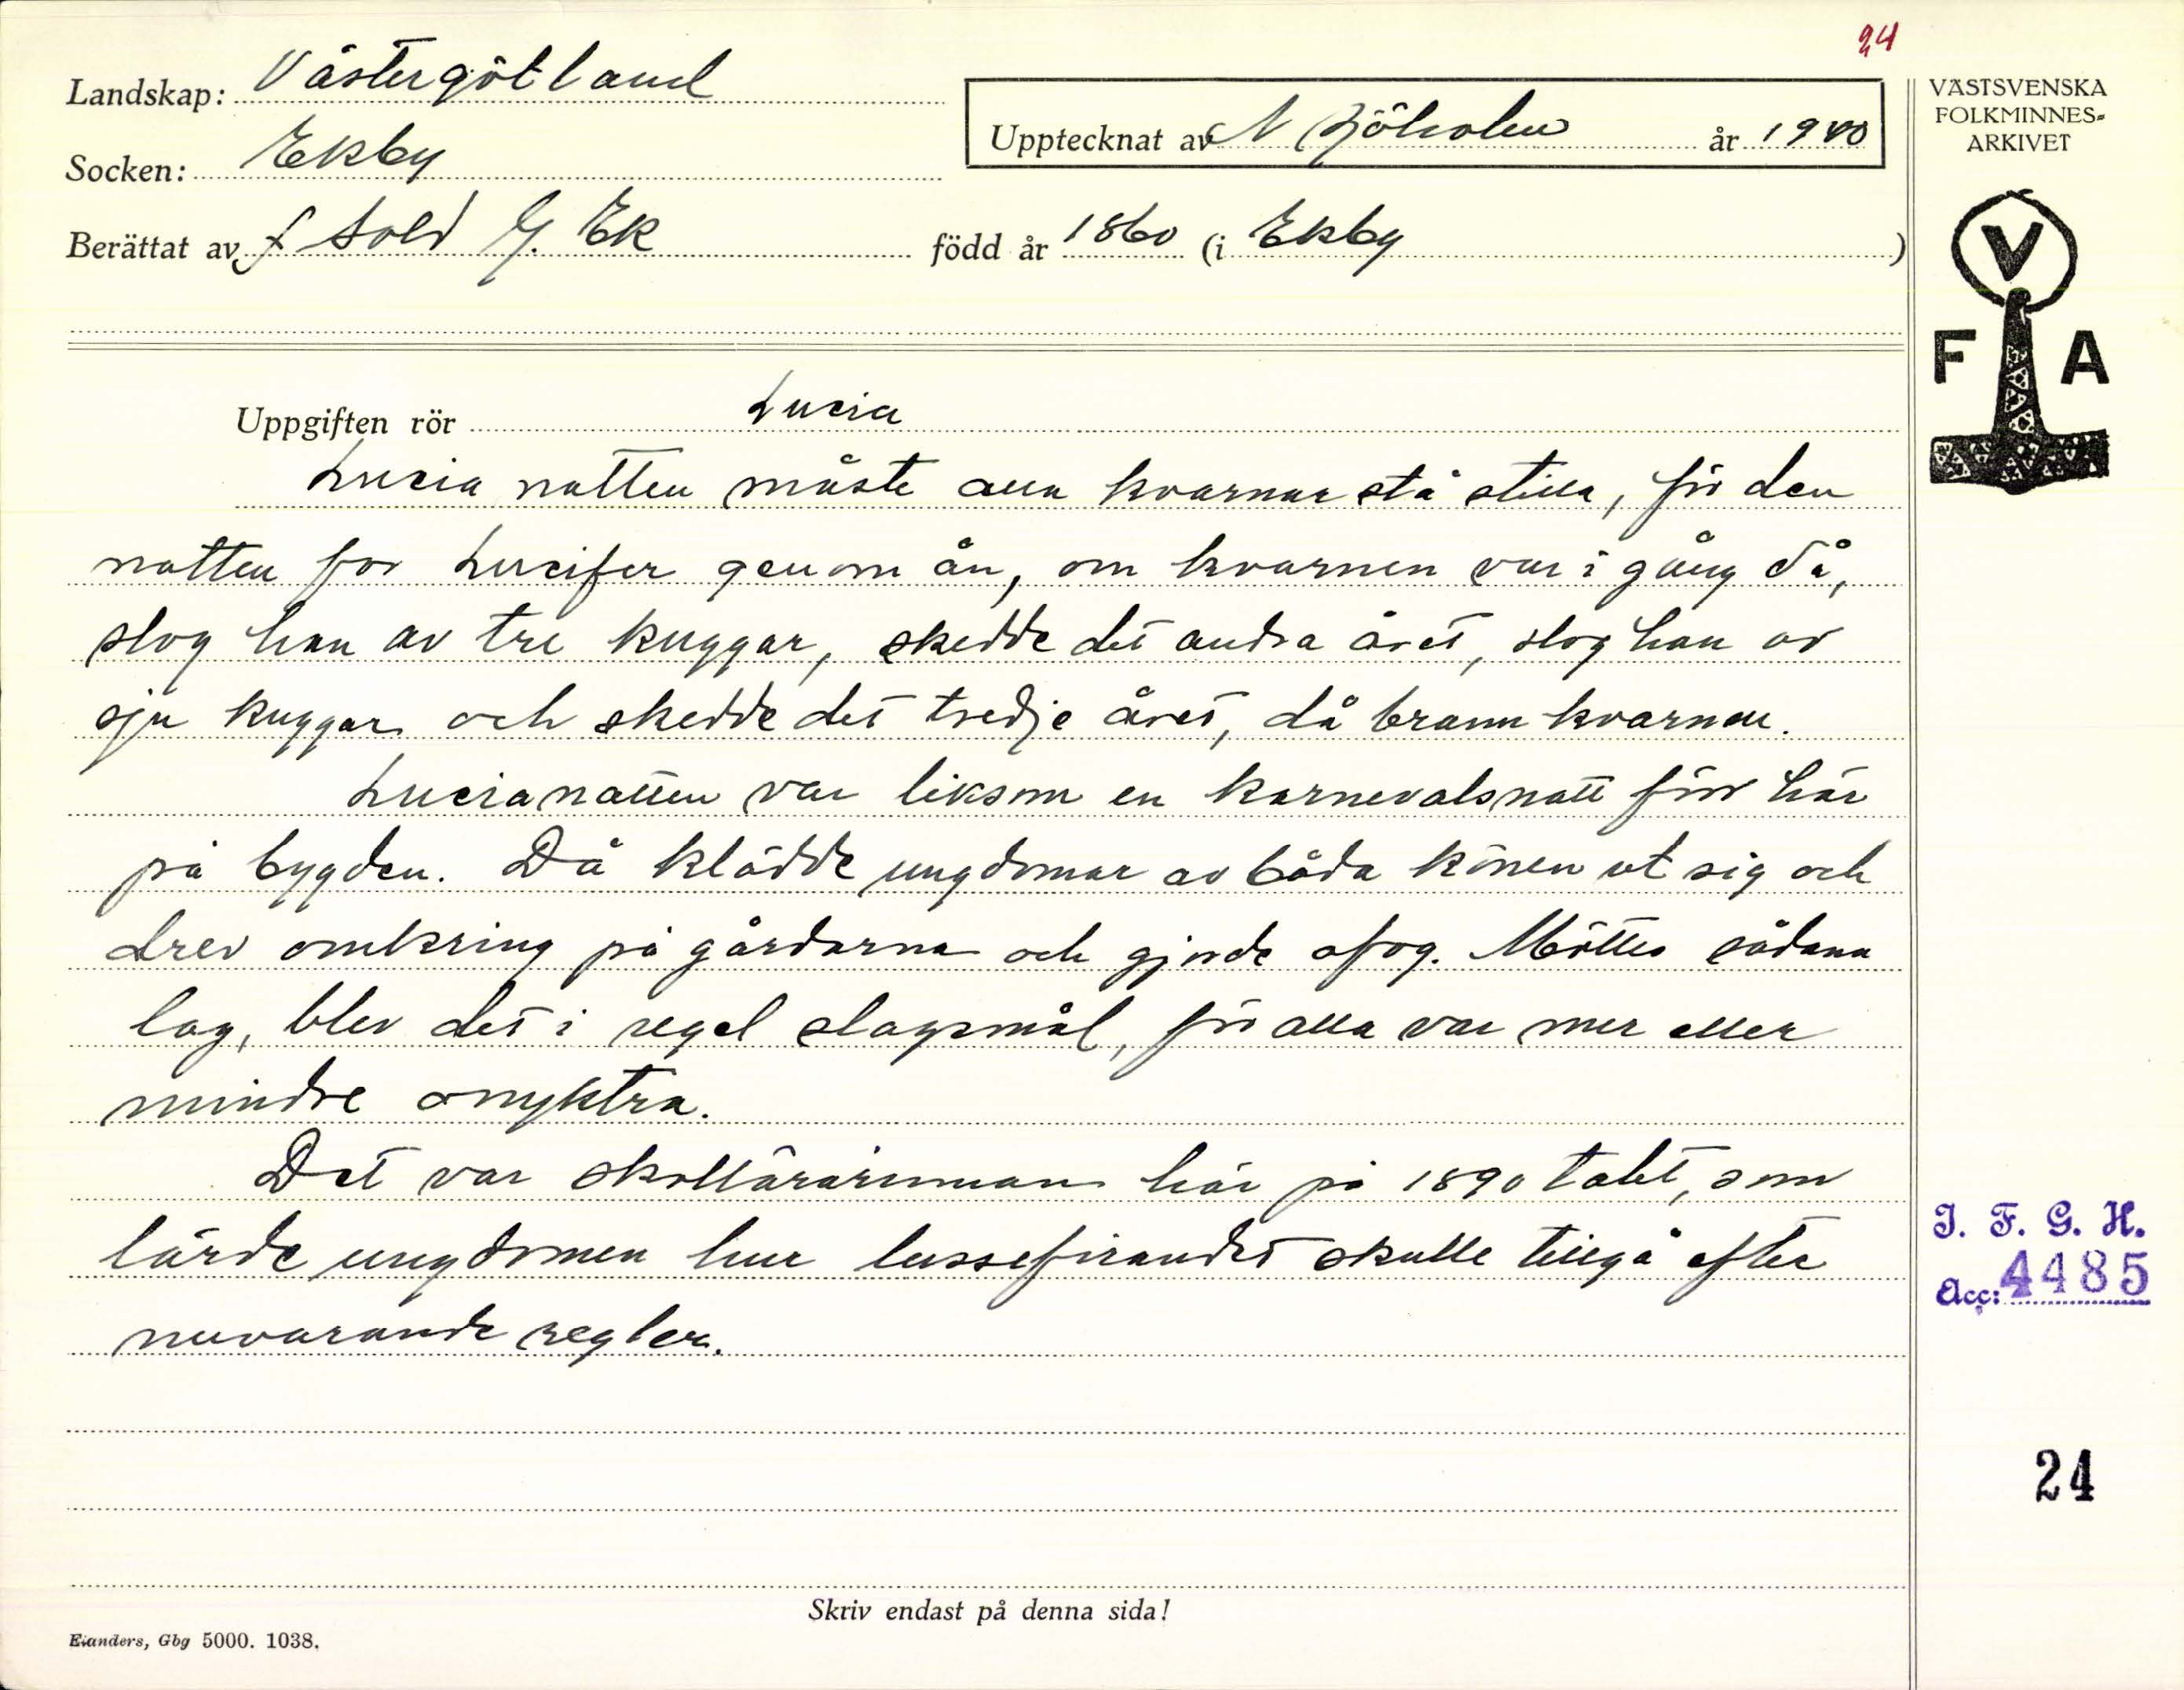 24
Landskap: Västergötland
Socken: Ekby
Upptecknat av N Sjöholm år 1940
Berättat av f Sold G. Ek född år 1860 (i Ekby)
VÄSTSVENSKA
FOLKMINNES=
ARKIVET
V
F A
Uppgiften rör Lucia
Lucia natten måste alla kvarnar stå stilla, för den
natten for Lucifer genom ån, om kvarnen var i gång då,
slog han av tre kuggar, skedde det andra året, slog han av
sju kuggar och skedde det tredje året, då brann kvarnen.
Lucianatten var liksom en karnevalsnatt förr här
på bygden. Då klädde ungdomar av båda könen ut sig och
drev omkring på gårdarna och gjorde ofog. Möttes sådana
lag, blev det i regel slagsmål, för alla var mer eller
mindre onyktra.
Det var skollärarinnan här på 1890 talet, som
lärde ungdomen hur lussefirandet skulle tillgå efter
nuvarande regler.
I. F. G. H.
Acc: 4485
24
Skriv endast på denna sida!
Elanders, Gbg 5000. 1038.